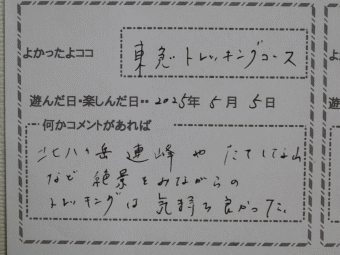 よかったよココ
東急トレッキングコース
遊んだ日・楽しんだ日‥ 2025年 5月 5日
何かコメントがあれば
北八ヶ岳連峰やたてしな山
など絶景をみながらの
トレッキングは気持ち良かった。